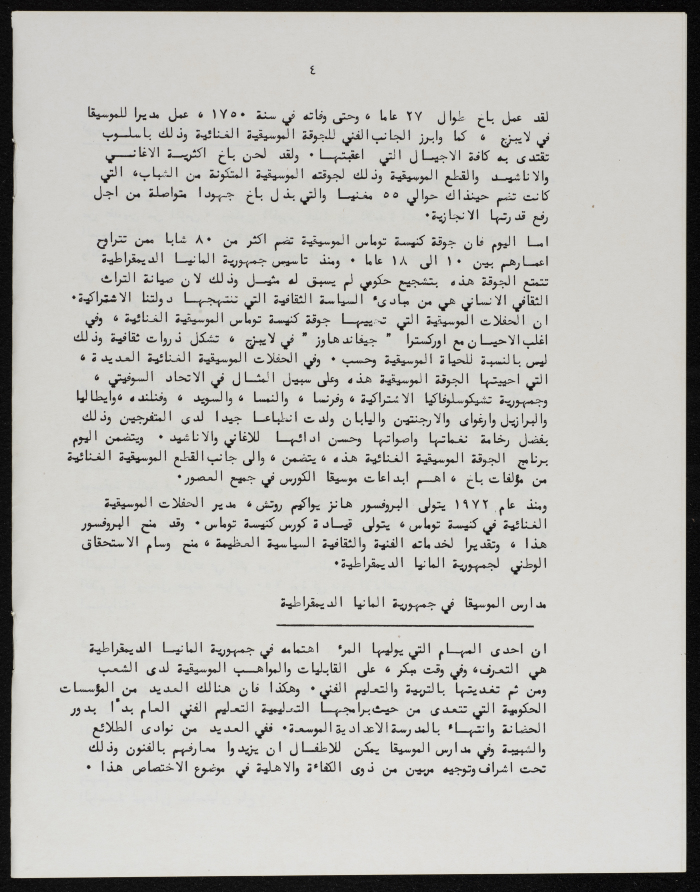 ٤
لقد عمل باخ طوال ٢٧ عاما ، وحتى وفاته في سنة ١٧٥٠ ، عمل مديرا للموسيقا
في لايبزج ، كما وابرز الجانب الفني للجوقة الموسيقية الغنائية وذلك باسلوب
تقتدى به كافة الاجيال التي اعقبتها . ولقد لحن باخ اكثرية الاغاني
والاناشيد والقطع الموسيقية وذلك لجوقته الموسيقية المتكونة من الشباب ، التي
كانت تضم حينذاك حوالي ٥٥ مغنيا والتي بذل باخ جهودا متواصلة من اجل
رفع قدرتها الانجازية .
اما اليوم فان جوقة كنيسة توماس الموسيقية تضم اكثر من ٨٠ شابا ممن تتراوح
اعمارهم بين ١٠ الى ١٨ عاما . ومنذ تاسيس جمهورية المانيا الديمقراطية
تتمتع الجوقة هذه بتشجيع حكومي لم يسبق له مثيل وذلك لان صيانة التراث
الثقافي الانساني هي من مبادىء السياسة الثقافية التي تنتهجها دولتنا الاشتراكية .
ان الحفلات الموسيقية التي تحييها جوقة كنيسة توماس الموسيقية الغنائية ، وفي
اغلب الاحيان مع اوركسترا " جيفاندهاوز " في لايبزج ، تشكل ذروات ثقافية وذلك
ليس بالنسبة للحياة الموسيقية وحسب . وفي الحفلات الموسيقية الغنائية العديدة ،
التي احييتها الجوقة الموسيقية هذه وعلى سبيل المثال في الاتحاد السوفيتي ،
وجمهورية تشيكوسلوفاكيا الاشتراكية ، وفرنسا ، والنمسا ، والسويد ، وفنلنده ، وايطاليا
والبرازيل وارغواى والارجنتين واليابان ولدت انطباعا جيدا لدى المتفرجين وذلك
بفضل رخامة نغماتها واصواتها وحسن ادائها للاغاني والاناشيد . ويتضمن اليوم
برنامج الجوقة الموسيقية الغنائية هذه ، يتضمن ، والى جانب القطع الموسيقية الغنائية
من مؤلفات باخ ، اهم ابداعات موسيقا الكورس في جميع العصور .
ومنذ عام ١٩٧٢ يتولى البروفسور هانز يواكيم روتش ، مدير الحفلات الموسيقية
الغنائية في كنيسة توماس ، يتولى قيادة كورس كنيسة توماس . وقد منح البروفسور
هذا ، وتقديرا لخدماته الفنية والثقافية السياسية العظيمة ، منح وسام الاستحقاق
الوطني لجمهورية المانيا الديمقراطية .
مدارس الموسيقا في جمهورية المانيا الديمقراطية
ان احدى المهام التي يوليها المرء اهتمامه في جمهورية المانيا الديمقراطية
هي التعرف ، وفي وقت مبكر ، على القابليات والمواهب الموسيقية لدى الشعب
ومن ثم تغديتها بالتربية والتعليم الفني . وهكذا فان هنالك العديد من المؤسسات
الحكومية التي تتعدى من حيث برامجها التعليمية التعليم الفني العام بدءًا بدور
الحضانة وانتهاء بالمدرسة الاعدادية الموسعة . ففي العديد من نوادى الطلائع
والشبيبة وفي مدارس الموسيقا يمكن للاطفال ان يزيدوا معارفهم بالفنون وذلك
تحت اشراف وتوجيه مربين من ذوى الكفاءة والاهلية في موضوع الاختصاص هذا .